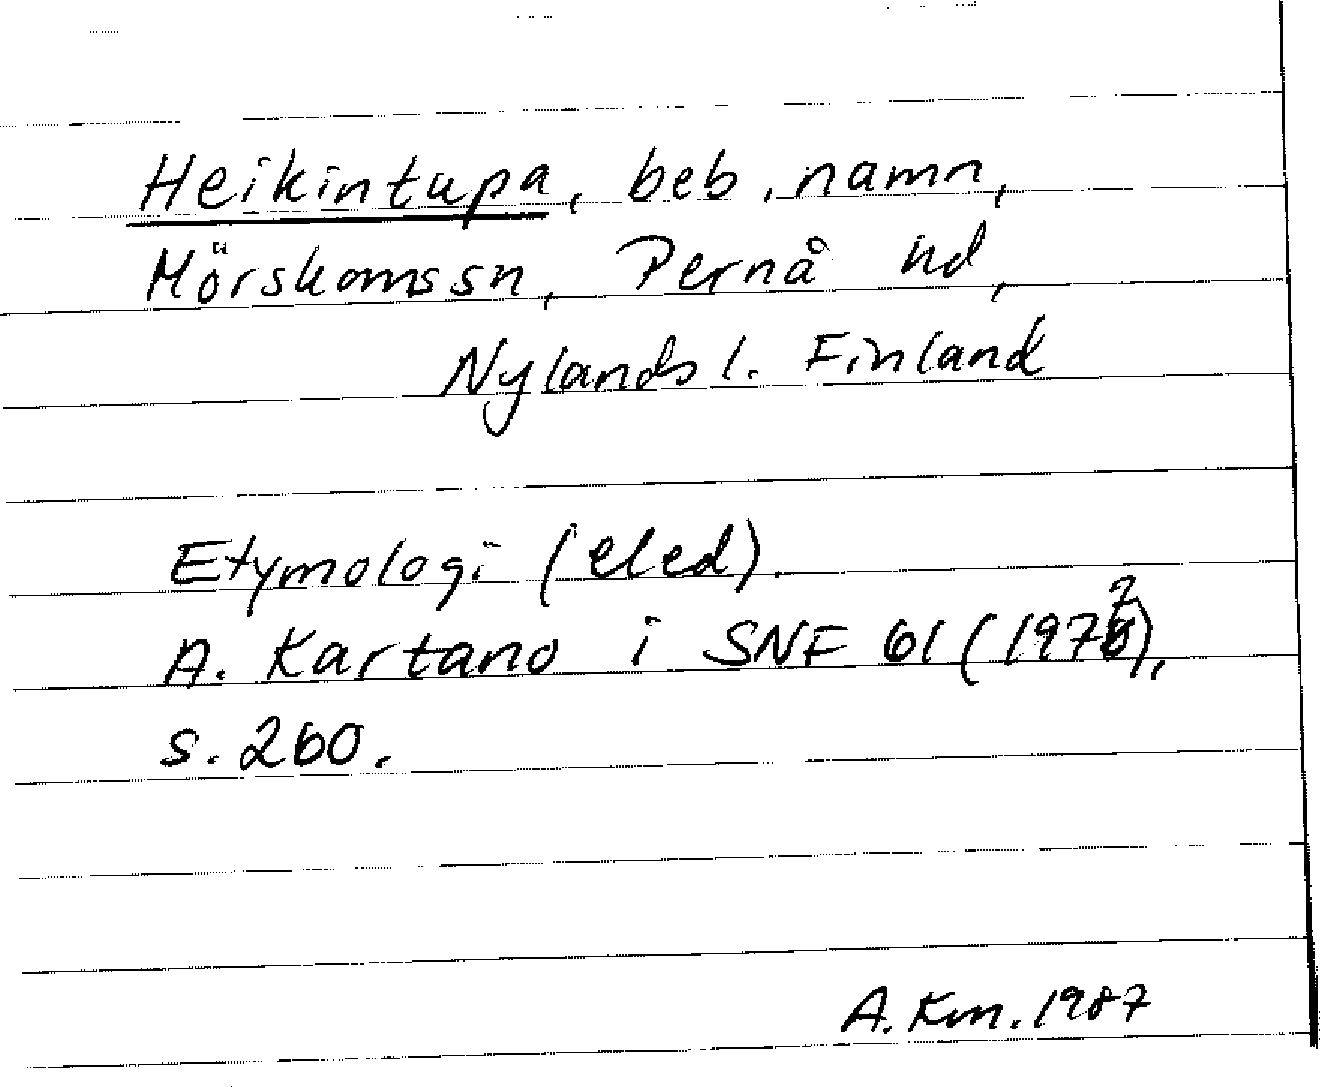 Heikintupa, beb.namn,
Mörskomssn, Pernå hd,
Nylands l. Finland
Etymologi (eled).
A. Kartano i SNF 61 (1972),
s. 260.
A. Km. 1987